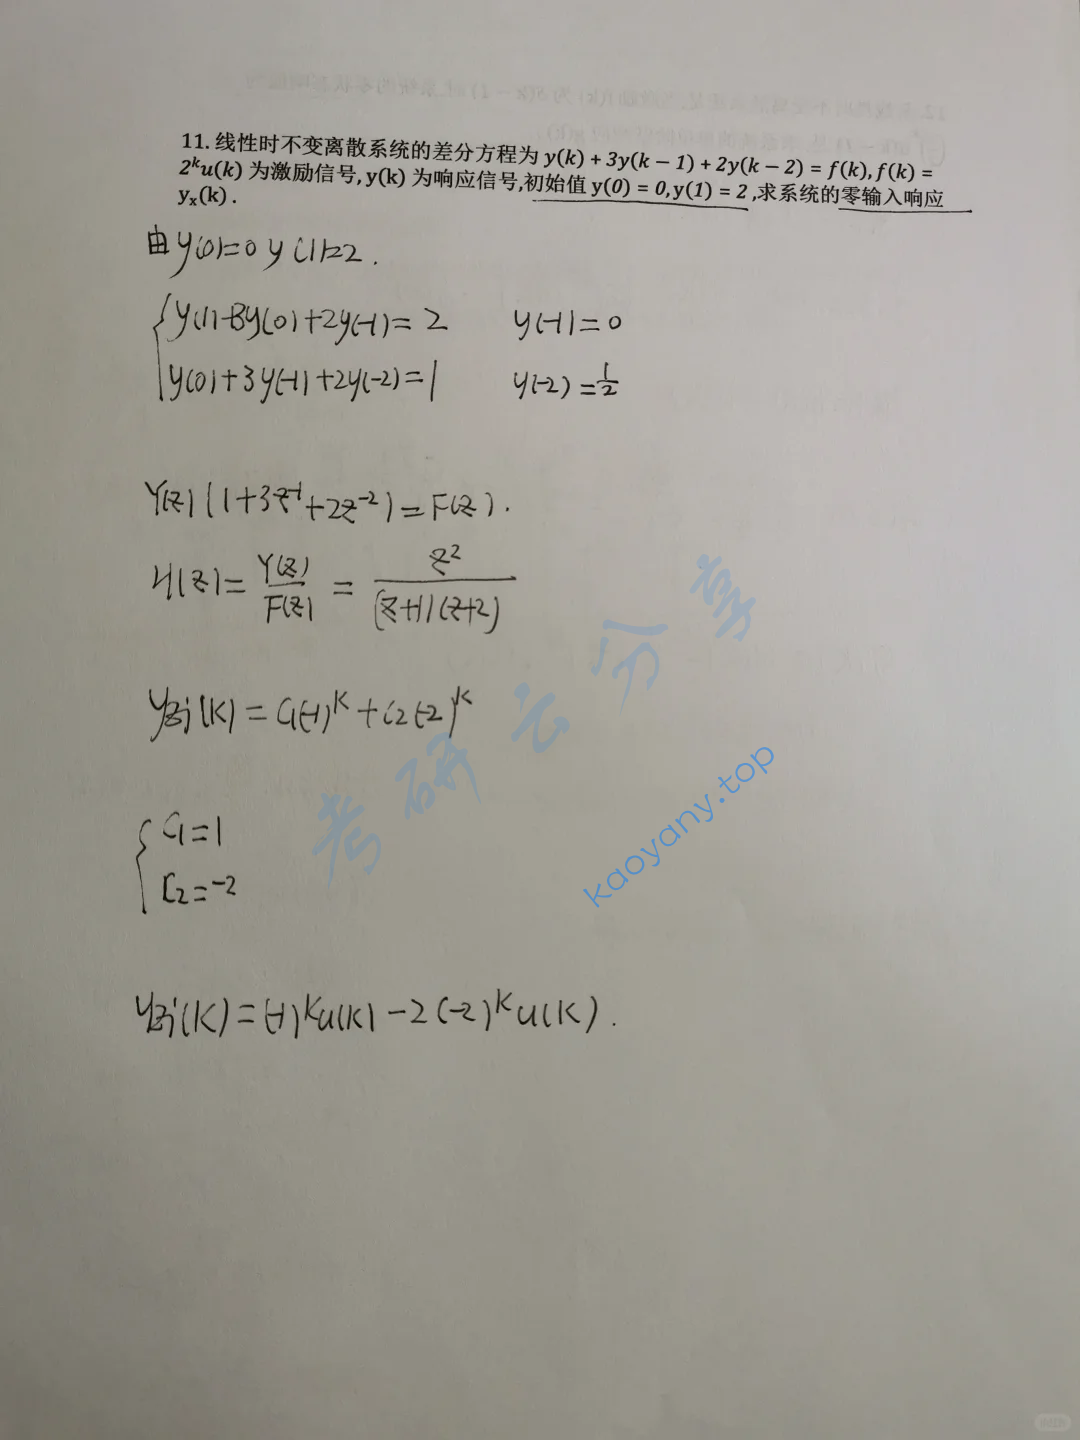 11. 线性时不变离散系统的差分方程为 y(k) + 3y(k − 1) + 2y(k − 2) = f(k), f(k) =
2ᵏu(k) 为激励信号, y(k) 为响应信号,初始值 y(0) = 0, y(1) = 2 ,求系统的零输入响应
yₓ(k) .
由 y(0)=0 y(1)=2 .
y(1)+3y(0)+2y(-1)=2 y(-1)=0
y(0)+3y(-1)+2y(-2)=1 y(-2)=1/2
Y(z)(1+3z⁻¹+2z⁻²)=F(z).
H(z)=Y(z)/F(z)=z²/(z+1)(z+2)
yzi(k)=C1(-1)ᵏ+C2(-2)ᵏ
C1=1
C2=-2
yzi(k)=(-1)ᵏu(k)-2(-2)ᵏu(k).
考研云分享
kaoyany.top